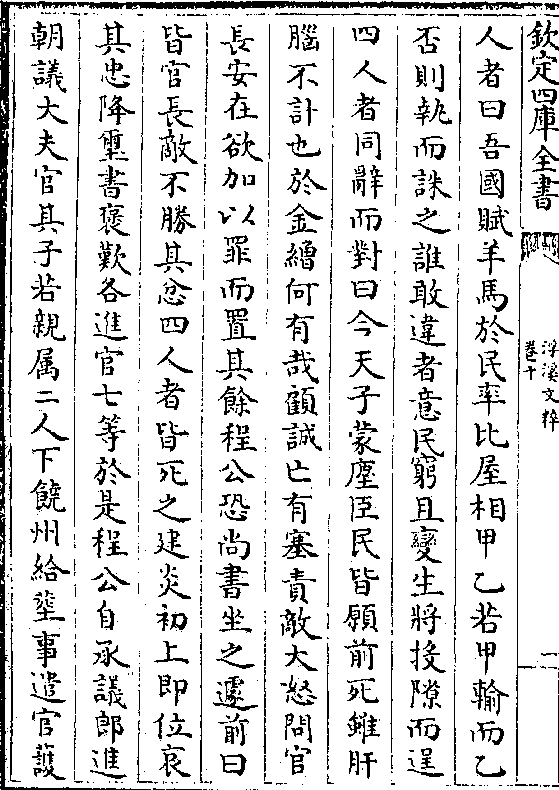 欽定四庫全書
浮溪文粹
卷十
一
人者曰吾國賦羊馬於民率比屋相甲乙若甲輸而乙
否則執而誅之誰敢違者意民窮且變生將投隙而逞
四人者同辭而對曰今天子蒙塵臣民皆願前死雖肝
腦不計也於金繒何有哉顧誠亡有塞責敵大怒問官
長安在欲加以罪而置其餘程公恐尚書坐之遽前曰
皆官長敵不勝其忿四人者皆死之建炎初上即位哀
其忠降璽書褒歎各進官七等於是程公自承議郎進
朝議大夫官其子若親属二人下饒州給塟事遣官䕶